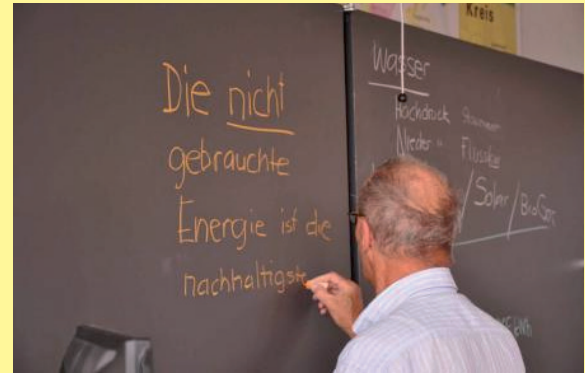 Die nicht
gebrauchte
Energie ist die
nachhaltigste
Kreis
Wasser
Hochdruck
Nieder "
/ Solar / BioGas